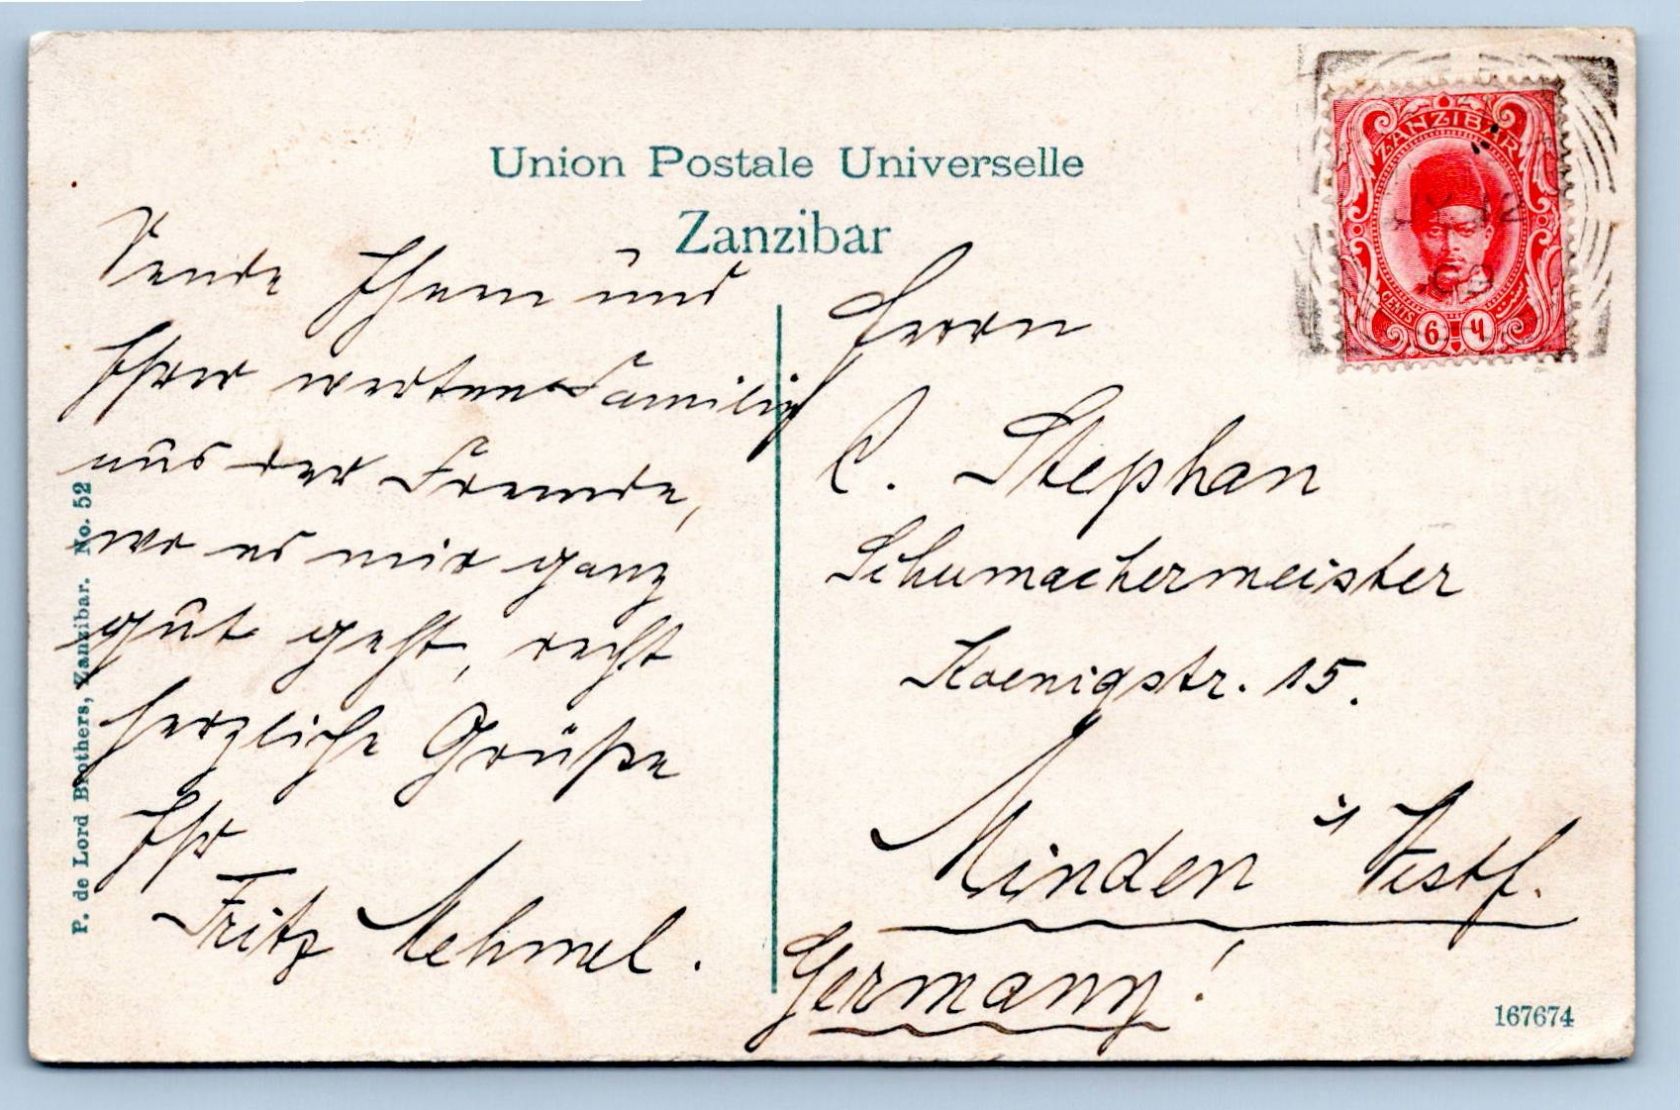 Union Postale Universelle
Zanzibar
Sende Ihnen und
Ihrer werten Familie
aus der Fremde,
wo es mir ganz
gut geht, recht
herzliche Grüße
Ihr
Fritz Mehmel.
Herrn
C. Stephan
Schumachermeister
Koenigstr. 15.
Minden i/ Westf.
Germany!
P. de Lord Brothers, Zanzibar. No. 52
ZANZIBAR
CENTS
6
167674